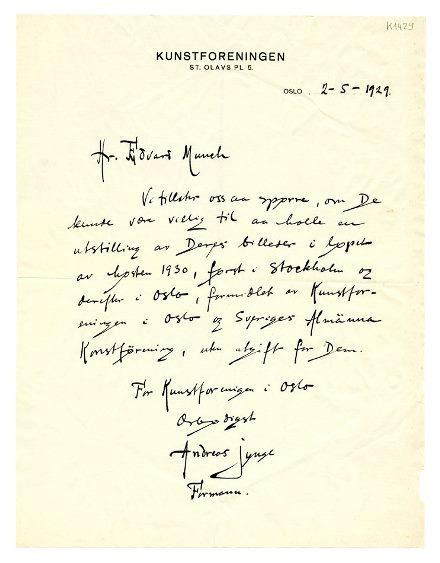 K1429
KUNSTFORENINGEN
ST. OLAVS PL. 5.
OSLO 2-5-1929.
Hr. Edvard Munch
Vi tillater oss aa spørre, om De
kunde være villig til aa holle en
utstilling av Deres billeder i løpet
av høsten 1930, først i Stockholm og
derefter i Oslo, formidlet av Kunstfor-
eningen i Oslo og Sveriges Almänna
Konstförening, uten utgift for Dem.
For Kunstforeningen i Oslo
Ærbødigst
Andreas Jynge
Formann.